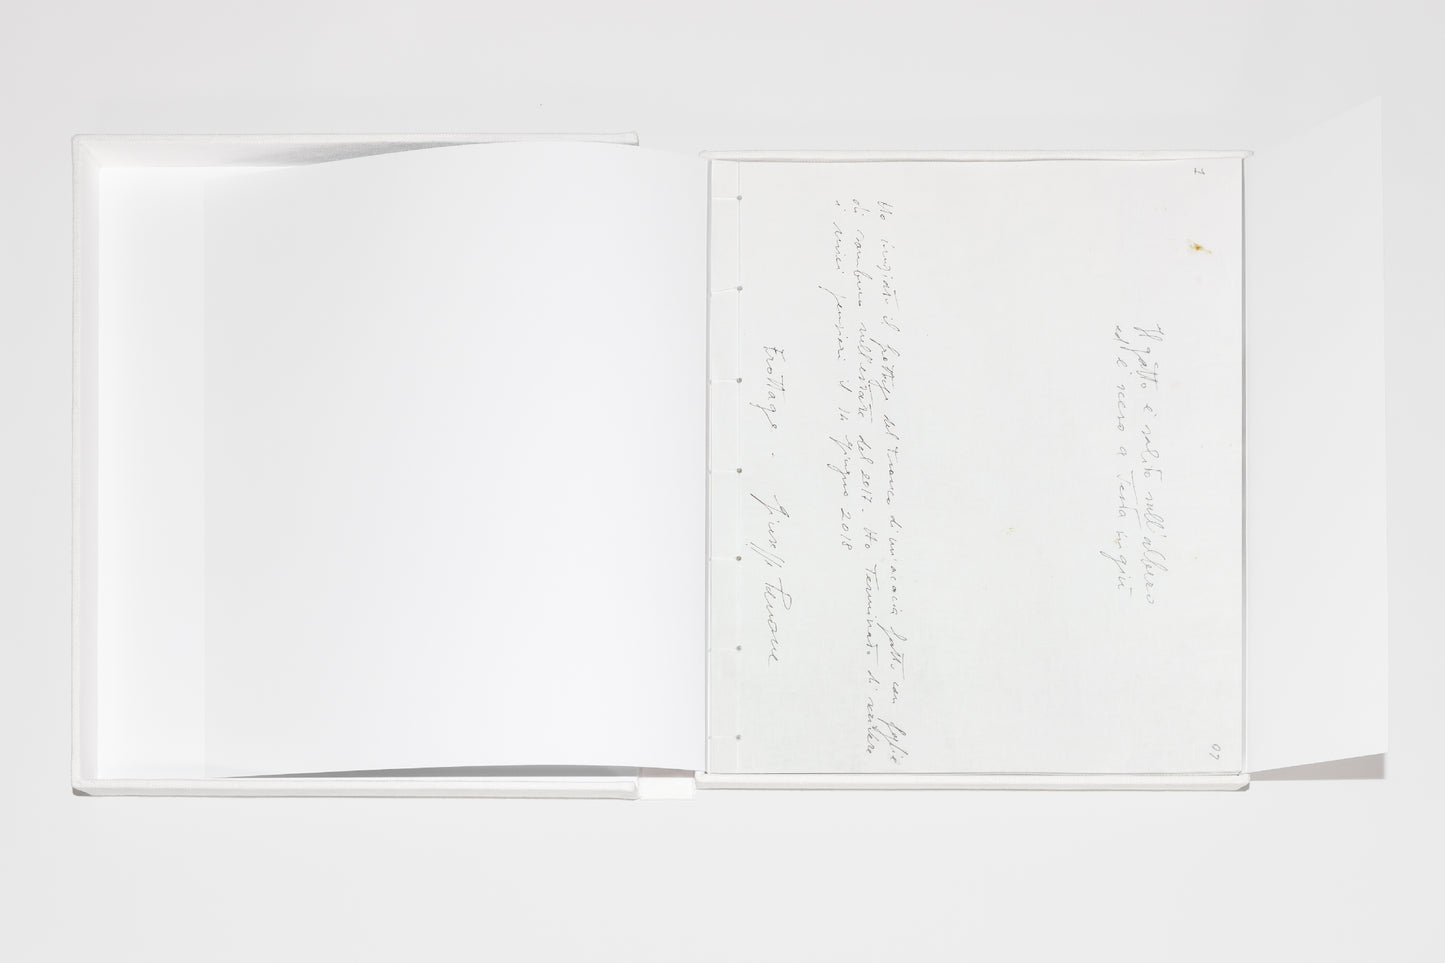 1
07
Il gatto è salito sull'albero
ed è sceso a Testa in giù
Ho iniziato il frottage del Tronco di un'acacia fatto con foglie
di sambuco nell'estate del 2017. Ho Terminato di scrivere
i miei pensieri in giugno 2018
Frottage - Giuseppe Penone